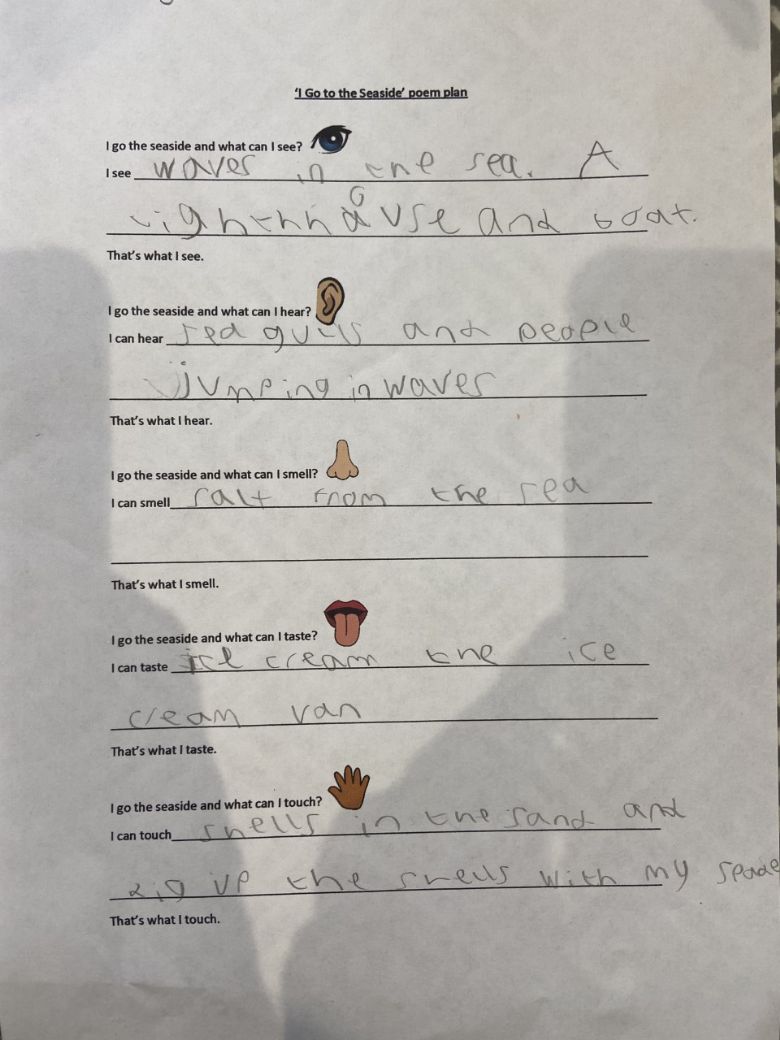 'I Go to the Seaside' poem plan
I go the seaside and what can I see?
I see waves in the sea. A
lighthhause and boat.
That's what I see.
I go the seaside and what can I hear?
I can hear sea gulls and people
jumping in waves
That's what I hear.
I go the seaside and what can I smell?
I can smell salt from the sea
That's what I smell.
I go the seaside and what can I taste?
I can taste ice cream the ice
cream van
That's what I taste.
I go the seaside and what can I touch?
I can touch shells in the sand and
dig up the shells with my spade
That's what I touch.